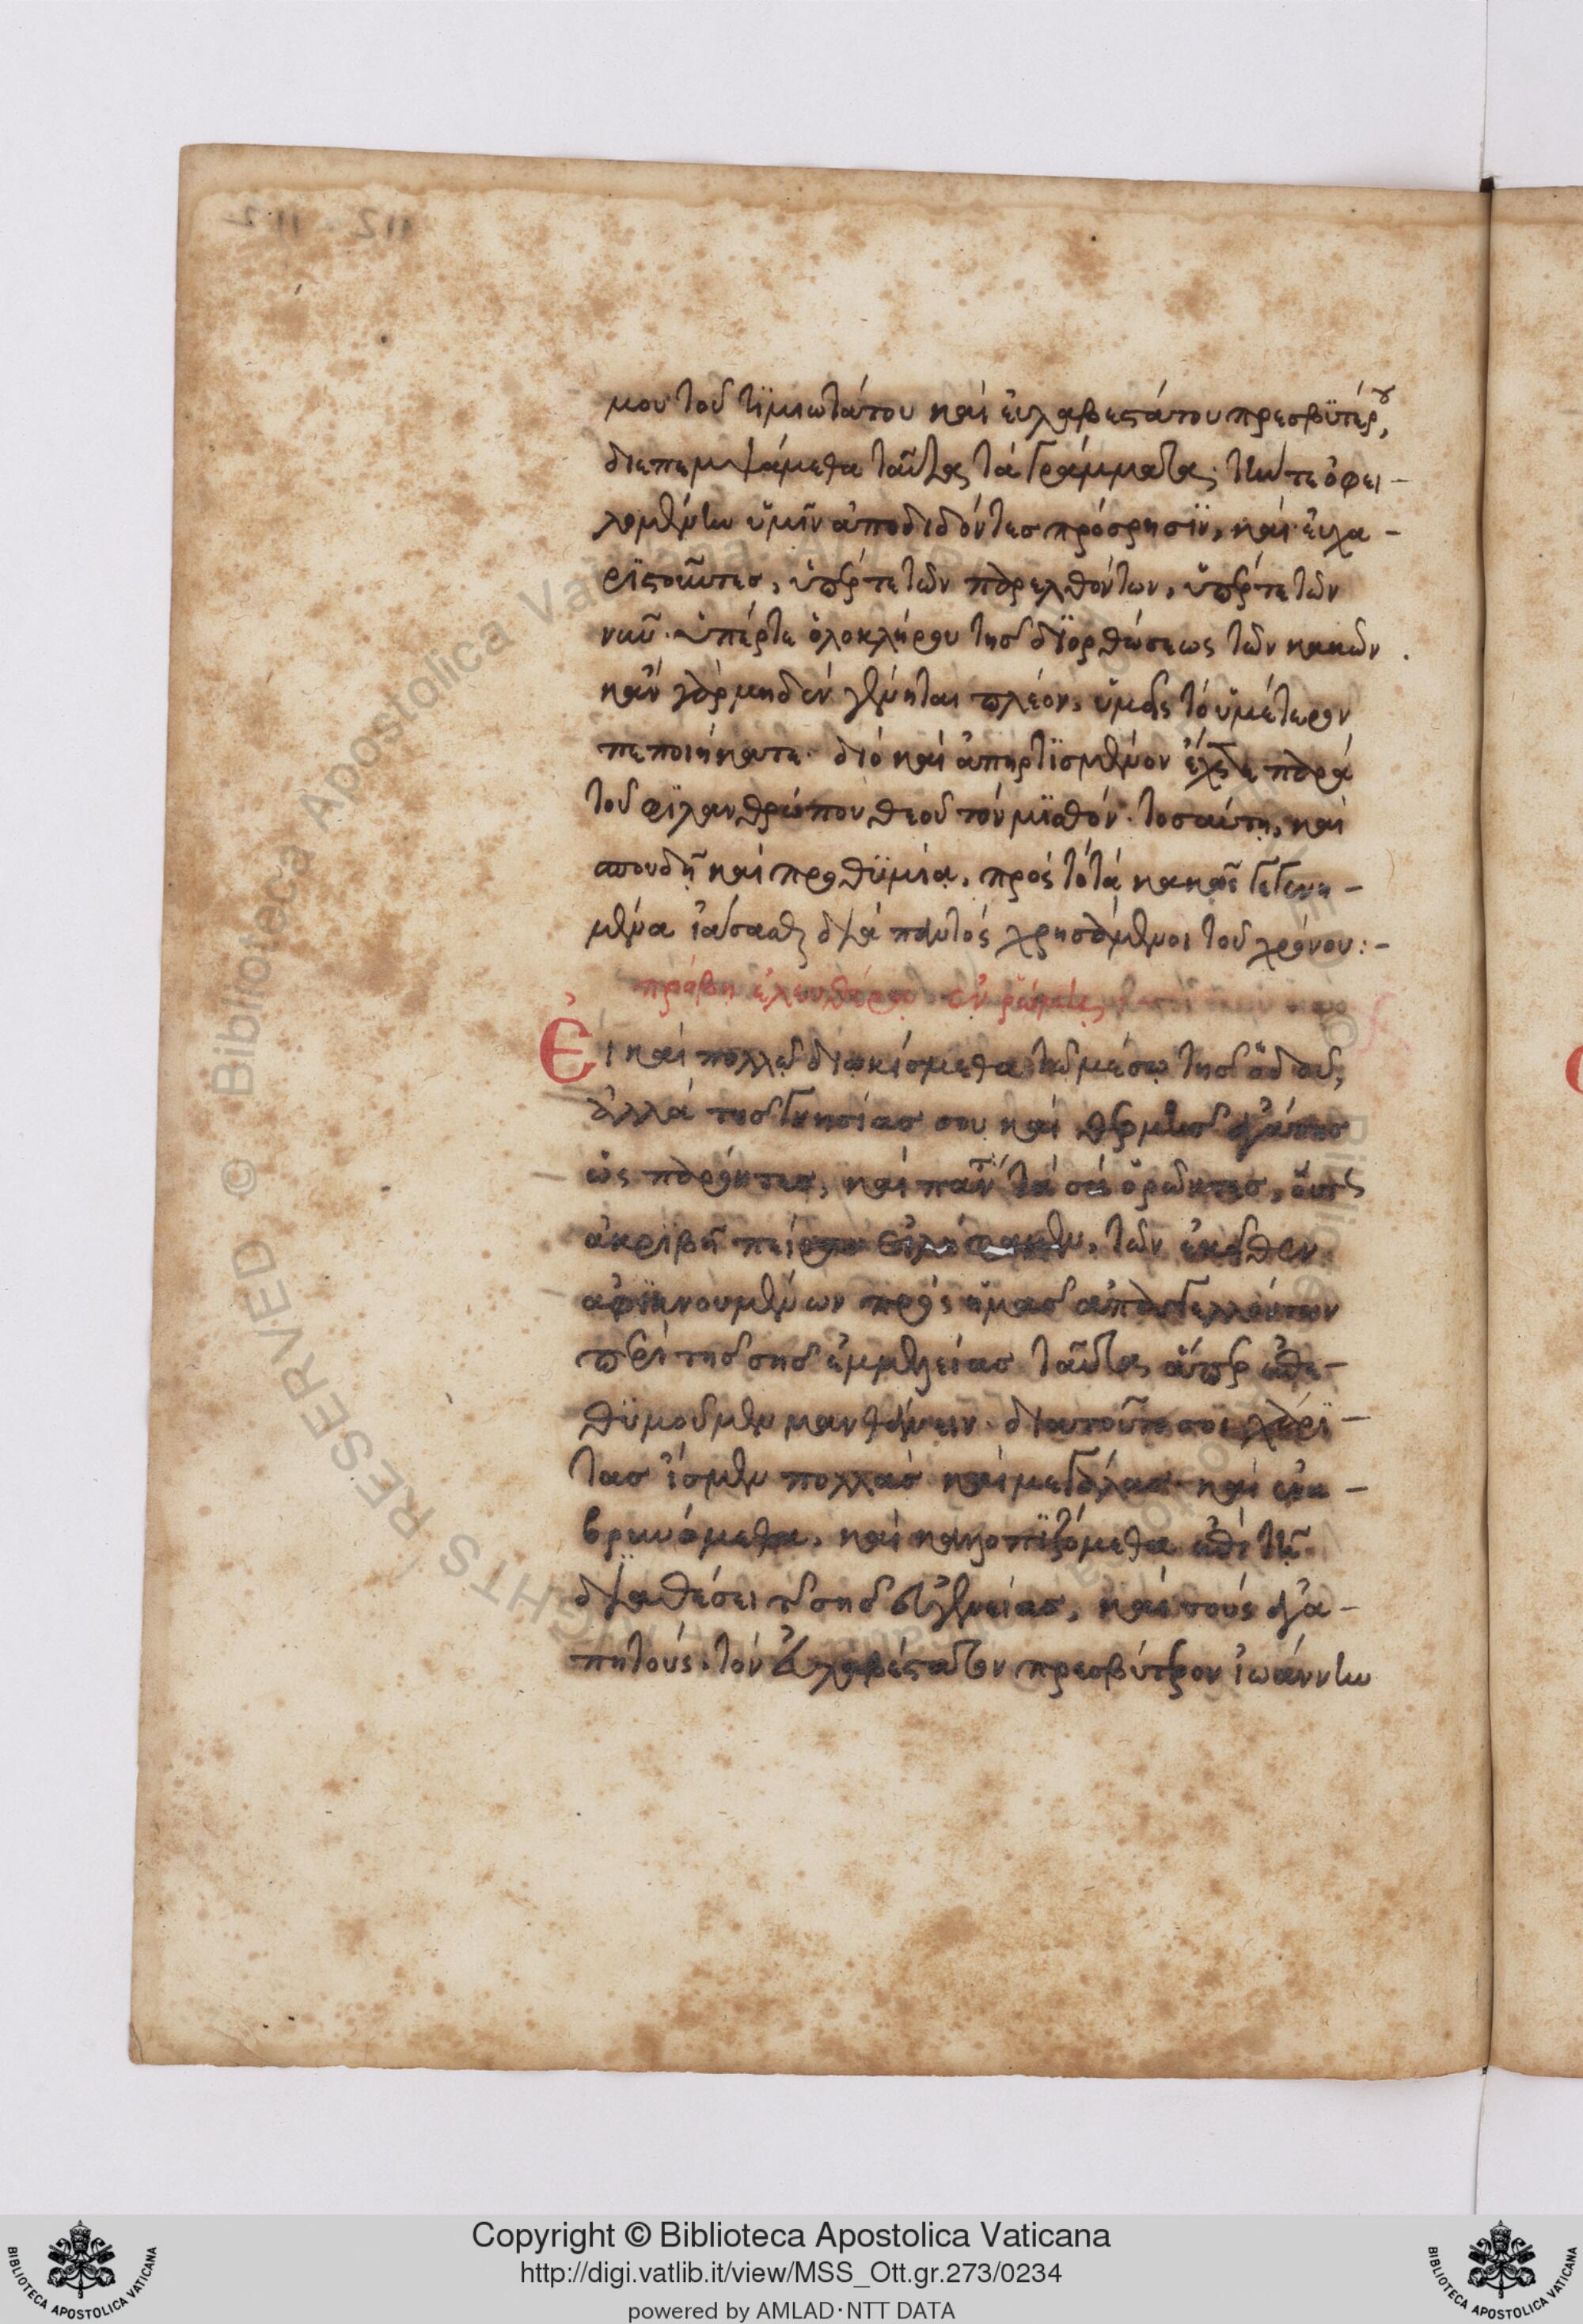 μου τοῦ τϊμιωτάτου καὶ εὐλαβεστάτου πρεσβϋτέρου,
διεπεμψάμεθα ταῦτα τὰ γράμματα· τήν τε ὀφει-
λομένην ὑμῖν ἀποδιδόντες πρόσρησϊν, καὶ εὐχα-
ρϊστοῦντες, ὑπέρ τε τῶν παρελθόντων, ὑπέρ τε τῶν
νῦν· ὑπέρ τε ὁλοκλήρου τῆς δϊορθώσεως τῶν κακῶν.
κἂν γὰρ μηδὲν γένηται πλέον, ὑμεῖς τὸ ὑμέτερον
πεποιήκατε· διὸ καὶ ἀπηρτϊσμένον ἔχετε παρὰ
τοῦ φϊλανθρώπου θεοῦ τὸν μϊσθόν· τοσαύτῃ, καὶ
σπουδῇ καὶ προθϋμίᾳ, πρὸς τὸ τὰ κακῶς γεγενη-
μένα ἰάσασθαι διὰ παντὸς χρησάμενοι τοῦ χρόνου:-
ἐν ῥώμῃ
Εἰ καὶ πολλῷ διῳκίσμεθα τῷ μέσῳ τῆς ὁδοῦ,
ἀλλὰ τῆς γνησίας σου καὶ θερμῆς ἀγάπης
ὡς παρόντες, καὶ πάντα τὰ σὰ ὁρῶντες, οὕτως
ἀκρϊβῆ πεῖραν εἰλήφαμεν, τῶν ἐκεῖθεν
ἀφϊκνουμένων πρὸς ἡμᾶς ἀπαγγελλόντων
περὶ τῆς σῆς ἐμμελείας ταῦτα, ἅπερ ἐπε-
θϋμοῦμεν μανθάνειν· διὰ τοῦτό σοι χάρϊ-
τας ἴσμεν πολλὰς καὶ μεγάλας· καὶ ἐνα-
βρυνόμεθα, καὶ καλλωπϊζόμεθα ἐπὶ τῇ
διαθέσει τῆς σῆς εὐγενείας, καὶ τοὺς ἀγα-
πητούς· τὸν εὐλαβέστατον πρεσβύτερον ἰωάννην
Copyright © Biblioteca Apostolica Vaticana
http://digi.vatlib.it/view/MSS_Ott.gr.273/0234
powered by AMLAD·NTT DATA
BIBLIOTECA APOSTOLICA VATICANA
BIBLIOTECA APOSTOLICA VATICANA